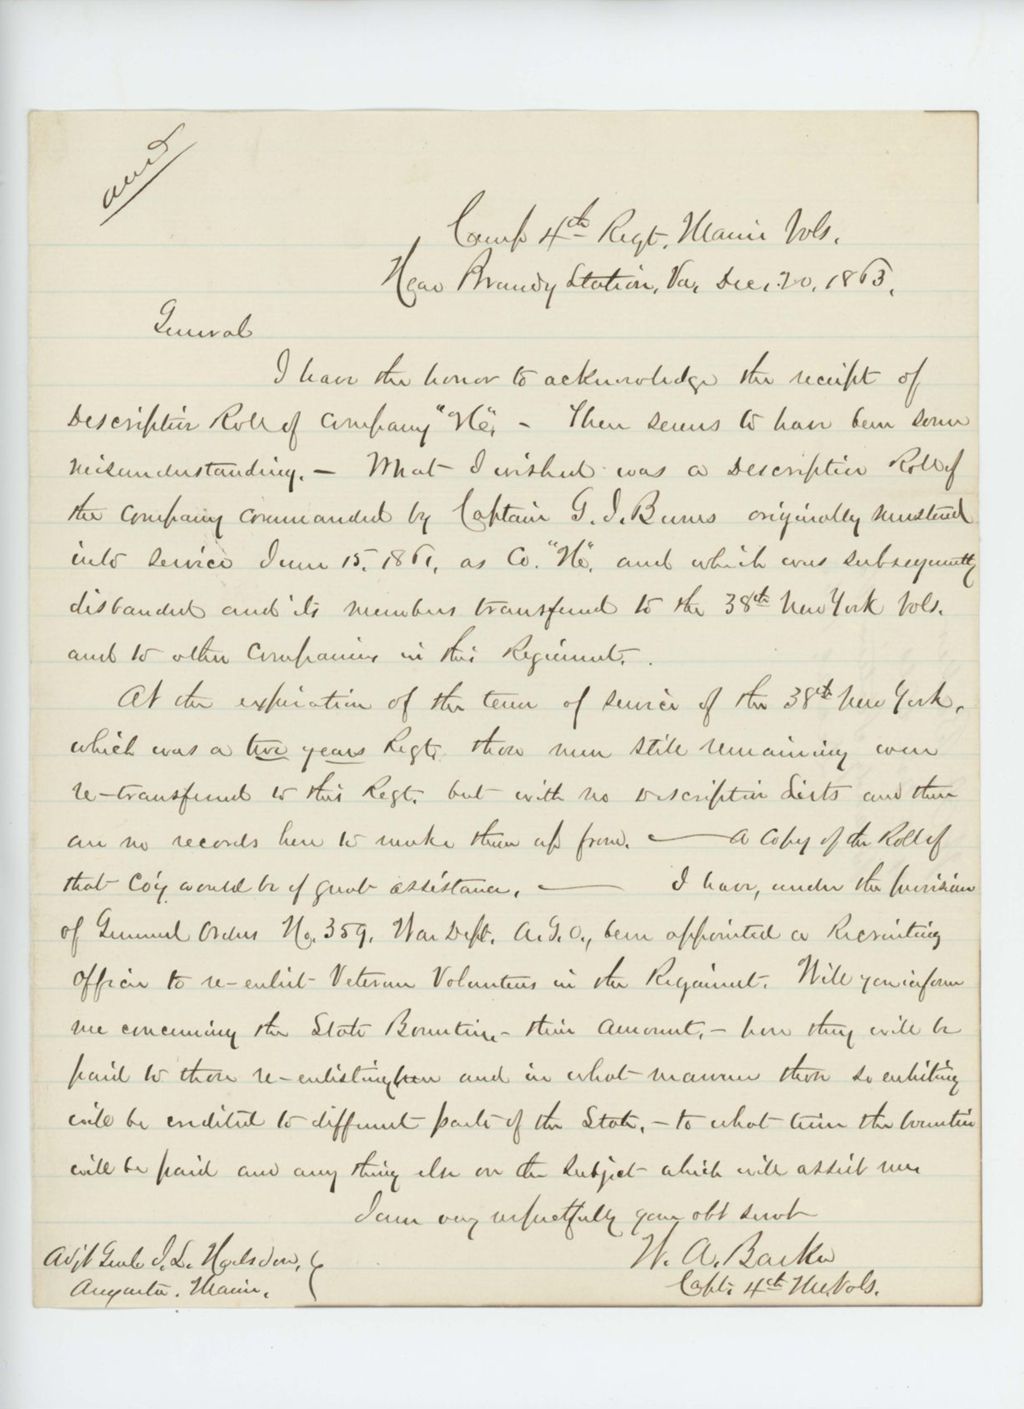 ansd
Camp 4th Regt. Maine Vols.
Near Brandy Station, Va, Dec. 20, 1863.
General
I have the honor to acknowledge the receipt of
Descriptive Roll of Company "H", - There seems to have been some
misunderstanding. - What I wished was a Descriptive Roll of
the Company commanded by Captain G. J. Burns originally mustered
into service June 15, 1861, as Co. "H", and which was subsequently
disbanded and its members transferred to the 38th New York Vols.
and to other Companies in this Regiment.
At the expiration of the term of service of the 38th New York,
which was a two years Regt, those men still remaining were
re-transferred to this Regt. but with no Descriptive Lists and there
are no records here to make them up from. — A Copy of the Roll of
that Co'y would be of great assistance. — I have, under the provision
of General Orders No. 359, War Dept. A.G.O., been appointed a Recruiting
Officer to re-enlist Veteran Volunteers in the Regiment. Will you inform
me concerning the State Bounties, - their amount, - how they will be
paid to those re-enlisting here and in what manner those so enlisting
will be credited to different parts of the State, - to what time the bounties
will be paid and any thing else on the subject which will assist me
I am very respectfully your obt servt
Adjt Genl J. L. Hodsdon, W. A. Barker
Augusta. Maine. Capt. 4th Me. Vols.